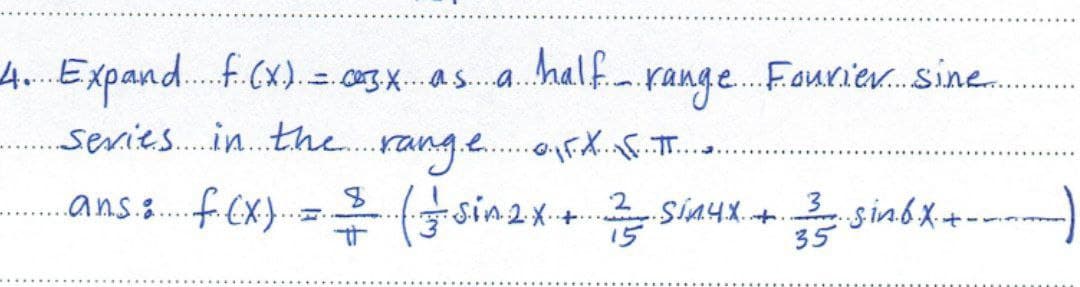 4. Expand f(x) = cos x as a half-range Fourier sine
series in the range 0 ≤ x ≤ π.
ans: f(x) = 8/π (1/3 sin 2x + 2/15 sin 4x + 3/35 sin 6x + ------)